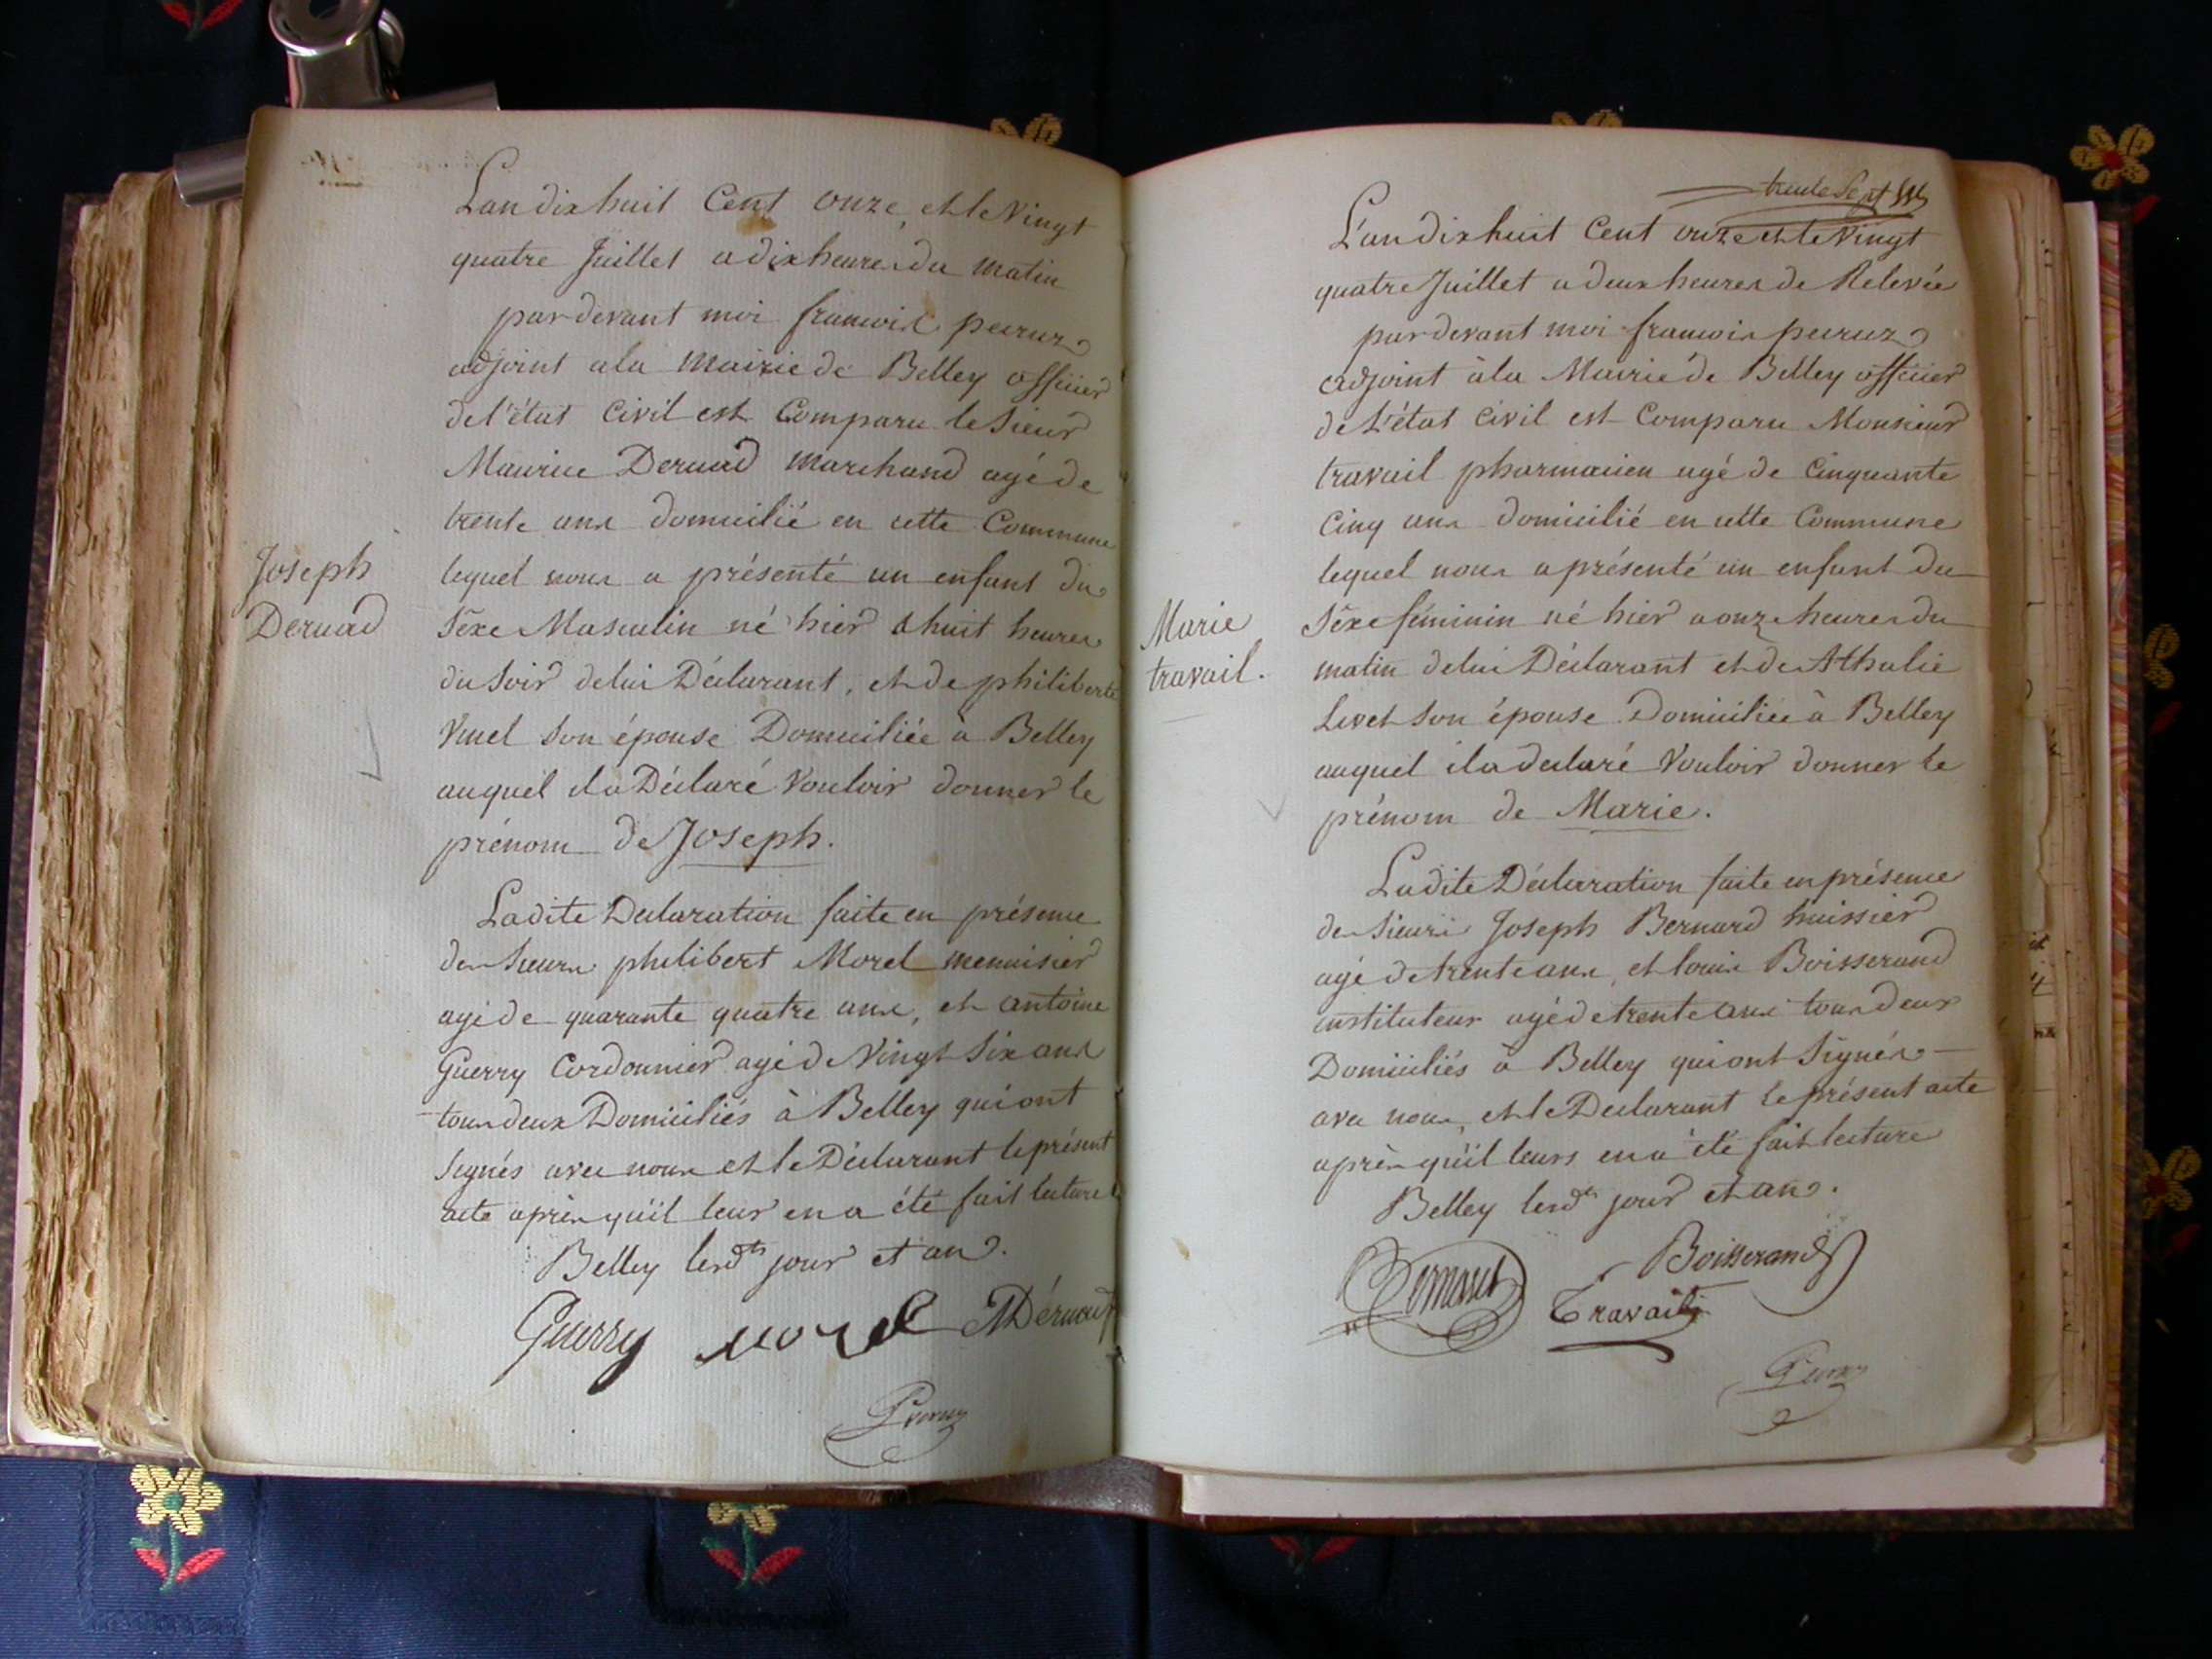 L'an dix huit Cent onze, et le Vingt
quatre Juillet a dix heures du matin
pardevant moi francois peiruz
adjoint a la Mairie de Belley officier
de l'état Civil est Comparu le Sieur
Maurice Deruad Marchand agé de
trente ans domicilié en cette Commune
lequel nous a présenté un enfant du
Joseph
Deruad
Séxe Masculin né hier a huit heures
du Soir de lui Déclarant, et de philiberte
son épouse Domiciliée à Belley
auquel il a Déclaré Vouloir donner le
prénom de Joseph.
Ladite Declaration faite en présence
des Sieurs philibert Morel menuisier
agé de quarante quatre ans, et antoine
Guerry Cordonnier agé de Vingt Six ans
tous deux Domiciliés à Belley qui ont
Signés avec nous et le Déclarant le présent
acte après qu'il leur en a été fait lecture
Belley lesdts jour et an.
Guerry morel MDéruad
Peiruz
trente Sept
L'an dix huit Cent onze et le Vingt
quatre Juillet a deux heures de Relevée
pardevant moi francois peiruz
adjoint à la Mairie de Belley officier
de L'état Civil est Comparu Monsieur
travail pharmacien agé de Cinquante
Cinq ans domicilié en cette Commune
lequel nous a présenté un enfant du
Marie
travail.
Séxe féminin né hier a onze heures du
matin de lui Déclarant et de Athalie
Livet Son épouse Domiciliée à Belley
auquel il a declaré Vouloir donner le
prénom de Marie.
Ladite Déclarration faite en présence
des Sieurs Joseph Bernard huissier
agé de trente ans, et louis Boisserand
instituteur agé de trente ans tous deux
Domiciliés à Belley qui ont Signés
avec nous, et le Declarant le présent acte
après qu'il leurs en a été fait lecture
Belley lesdts jour et an.
Boisserand
Bernard Travail
Peiruz